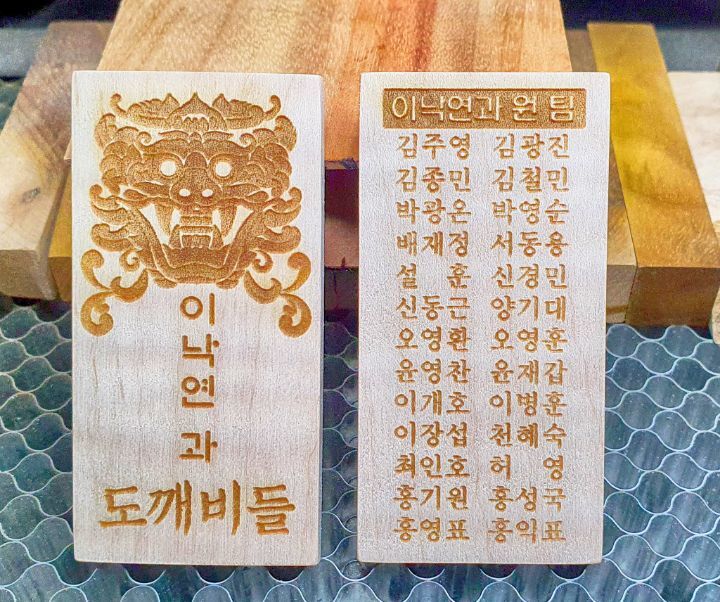 이
낙
연
과
도깨비들
이낙연과 원 팀
김주영 김광진
김종민 김철민
박광온 박영순
배재정 서동용
설 훈 신경민
신동근 양기대
오영환 오영훈
윤영찬 윤재갑
이개호 이병훈
이장섭 천혜숙
최인호 허 영
홍기원 홍성국
홍영표 홍익표